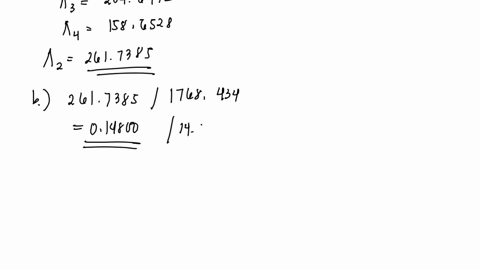 Λ₃ =
Λ₄ = 158.6528
Λ₂ = 261.7385
b.) 261.7385 / 1768.434
= 0.14800 / 14.